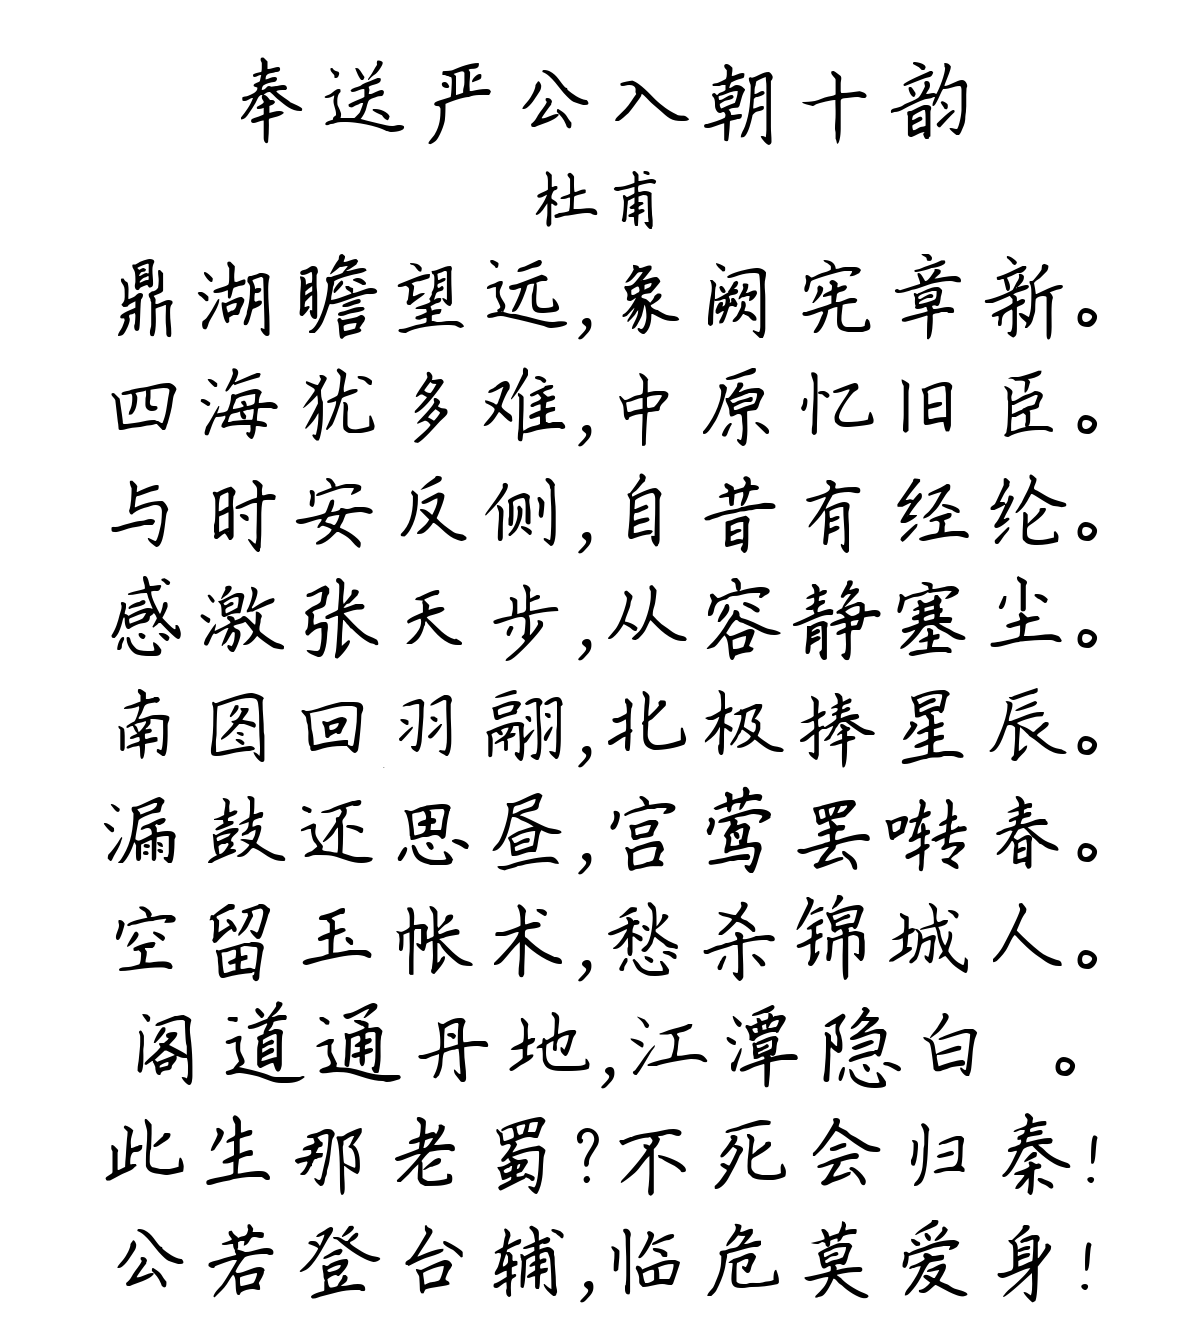 奉送严公入朝十韵
杜甫
鼎湖瞻望远,象阙宪章新。
四海犹多难,中原忆旧臣。
与时安反侧,自昔有经纶。
感激张天步,从容静塞尘。
南图回羽翮,北极捧星辰。
漏鼓还思昼,宫莺罢啭春。
空留玉帐术,愁杀锦城人。
阁道通丹地,江潭隐白 。
此生那老蜀?不死会归秦!
公若登台辅,临危莫爱身!